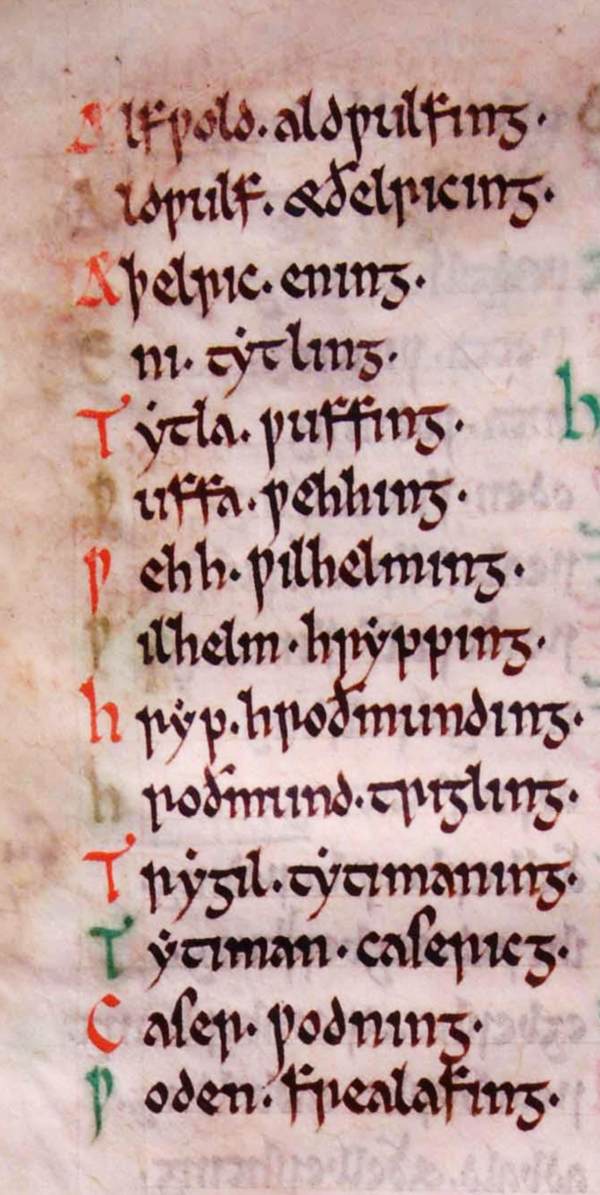 Alfƿold · aldƿulfing ·
Aldƿulf · æðelricing ·
Aþelric · ening ·
Eni · tẏtling ·
Tẏtla · ƿuffing ·
Ƿuffa · ƿehhing ·
Ƿehh · ƿilhelming ·
Ƿilhelm · hrẏpping ·
hrẏp · hroðmunding ·
hroðmund · trigling ·
Trẏgil · tẏtimaning ·
Tẏtiman · casericg ·
Caser · ƿodning ·
Ƿoden · frealafing ·
h